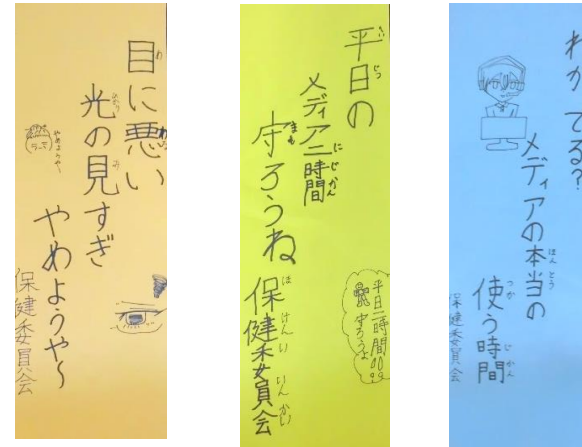 目に悪い
光の見すぎ
やめようや～
やめようや～
保健委員会
平日の
メディア二時間
守ろうね
保健委員会
平日二時間
守ろうよ
わかってる?
メディアの本当の
使う時間
保健委員会